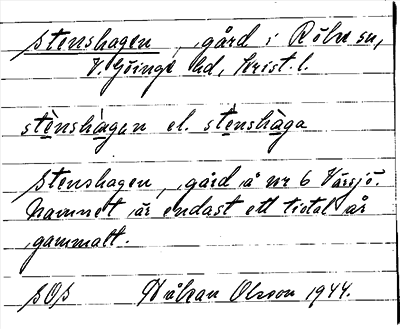 Stenshagen, gård i Röke sn,
V. Göinge hd, Krist. l.
stènshàgen el. stènshàga
Stenshagen, gård å nr 6 Värsjö.
Namnet är endast ett tiotal år
gammalt.
SOS Håkan Olsson 1944.